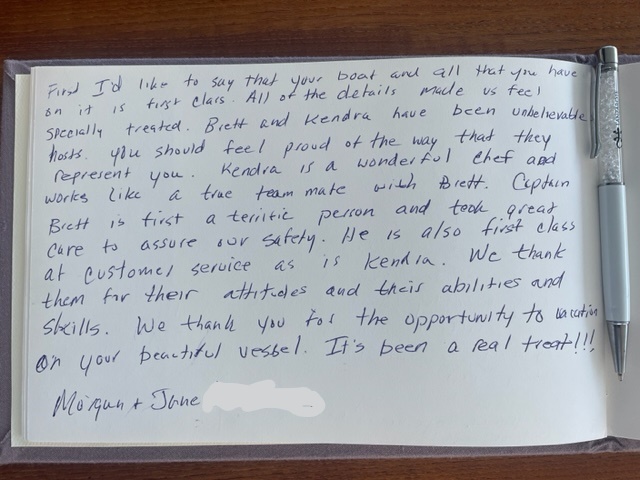 First I'd like to say that your boat and all that you have
on it is first class. All of the details made us feel
specially treated. Brett and Kendra have been unbelievable
hosts. You should feel proud of the way that they
represent you. Kendra is a wonderful chef and
works like a true team mate with Brett. Captain
Brett is first a teriitic person and took great
care to assure our safety. He is also first class
at customer service as is Kendra. We thank
them for their attitudes and their abilities and
skills. We thank you for the opportunity to vacation
on your beautiful vessel. It's been a real treat!!!
Morgan + Jane